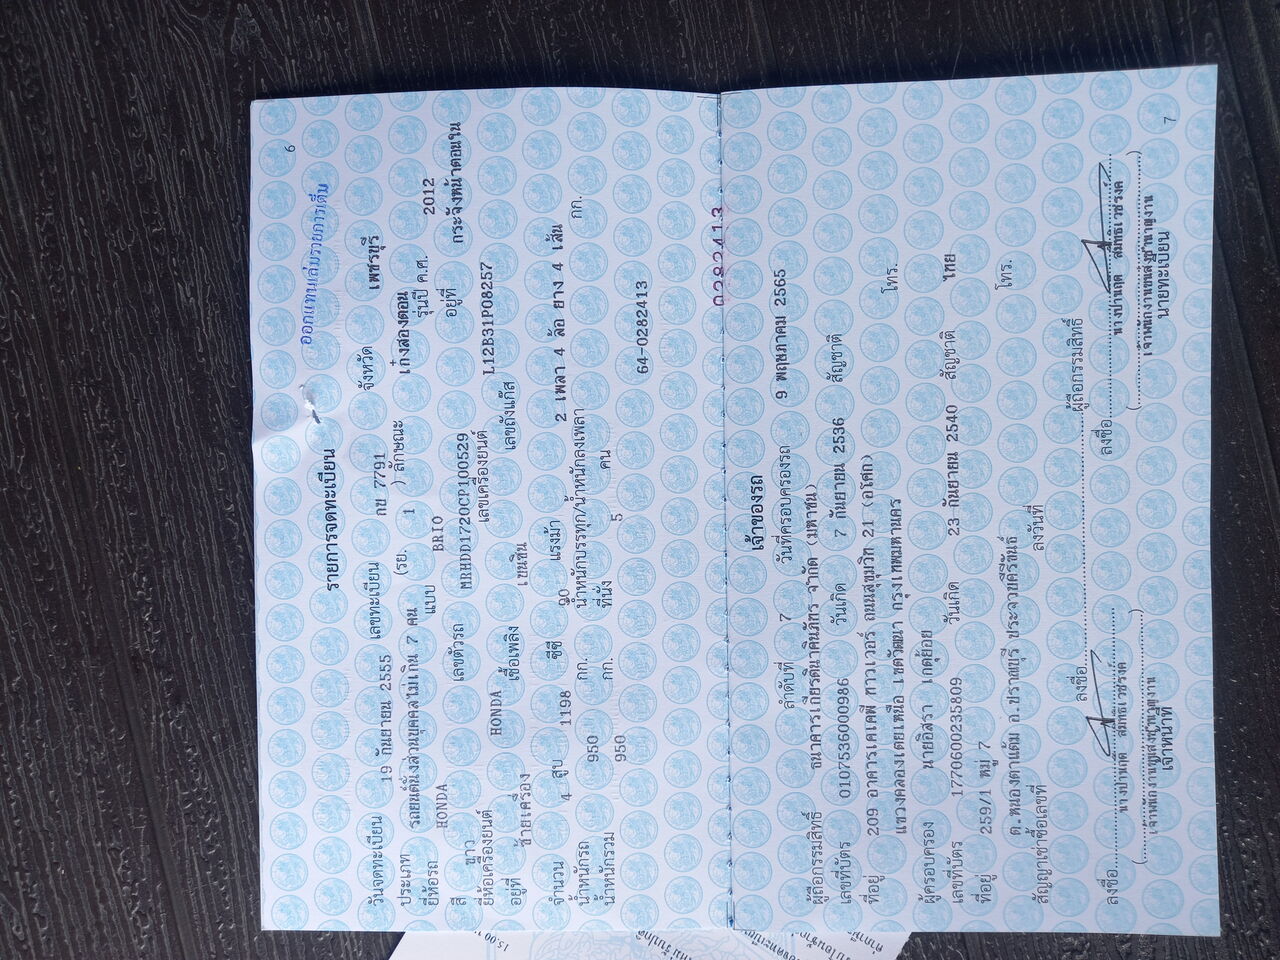 6
ออกแทนเล่มรายการเดิม
รายการจดทะเบียน
วันจดทะเบียน 19 กันยายน 2555 เลขทะเบียน กข 7791 จังหวัด เพชรบุรี
ประเภท รถยนต์นั่งส่วนบุคคลไม่เกิน 7 คน (รย. 1 ) ลักษณะ เก๋งสองตอน
ยี่ห้อรถ HONDA แบบ BRIO รุ่นปี ค.ศ. 2012
สี ขาว เลขตัวรถ MRHDD1720CP100529 อยู่ที่ กระจังหน้าตอนใน
ยี่ห้อเครื่องยนต์ HONDA เลขเครื่องยนต์ L12B31P08257
อยู่ที่ ซ้ายเครื่อง เชื้อเพลิง เบนซิน เลขถังแก๊ส
จำนวน 4 สูบ 1198 ซีซี 90 แรงม้า 2 เพลา 4 ล้อ ยาง 4 เส้น
น้ำหนักรถ 950 กก. น้ำหนักบรรทุก/น้ำหนักลงเพลา กก.
น้ำหนักรวม 950 กก. ที่นั่ง 5 คน
64-0282413
0282413
เจ้าของรถ
ลำดับที่ 7 วันที่ครอบครองรถ 9 พฤษภาคม 2565
ผู้ถือกรรมสิทธิ์ ธนาคารเกียรตินาคินภัทร จำกัด (มหาชน)
เลขที่บัตร 0107536000986 วันเกิด 7 กันยายน 2536 สัญชาติ
ที่อยู่ 209 อาคารเคเคพี ทาวเวอร์ ถนนสุขุมวิท 21 (อโศก)
แขวงคลองเตยเหนือ เขตวัฒนา กรุงเทพมหานคร โทร.
ผู้ครอบครอง นายอิสรา เกตุย้อย
เลขที่บัตร 1770600235809 วันเกิด 23 กันยายน 2540 สัญชาติ ไทย
ที่อยู่ 259/1 หมู่ 7
ต.หนองตาแต้ม อ.ปราณบุรี ประจวบคีรีขันธ์ โทร.
สัญญาเช่าซื้อเลขที่ ลงวันที่
ลงชื่อ ผู้ถือกรรมสิทธิ์
ลงชื่อ นางปานฤดี ลงชื่อ นางปานฤดี
เจ้าพนักงานขนส่งชำนาญงาน เจ้าพนักงานขนส่งชำนาญงาน
เจ้าหน้าที่ นายทะเบียน
7
15:00